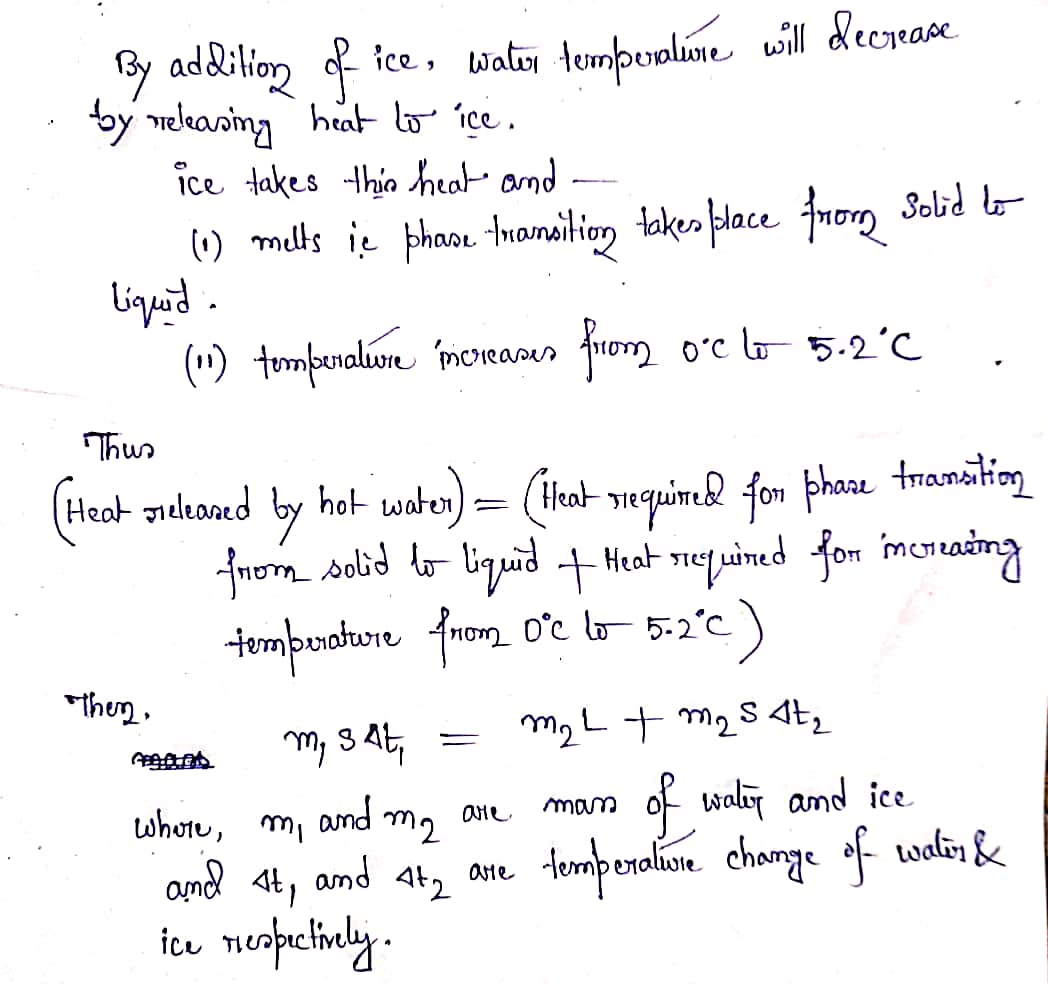 By addition of ice, water temperature will decrease
by releasing heat to ice.
ice takes this heat and —
(i) melts ie phase transition takes place from solid to
liquid.
(ii) temperature increases from 0°c to 5.2°C
Thus
(Heat released by hot water) = (Heat required for phase transition
from solid to liquid + Heat required for increasing
temperature from 0°c to 5.2°c)
Then,
m₁ s Δt₁ = m₂ L + m₂ s Δt₂
where, m₁ and m₂ are mass of water and ice
and Δt₁ and Δt₂ are temperature change of water &
ice respectively.